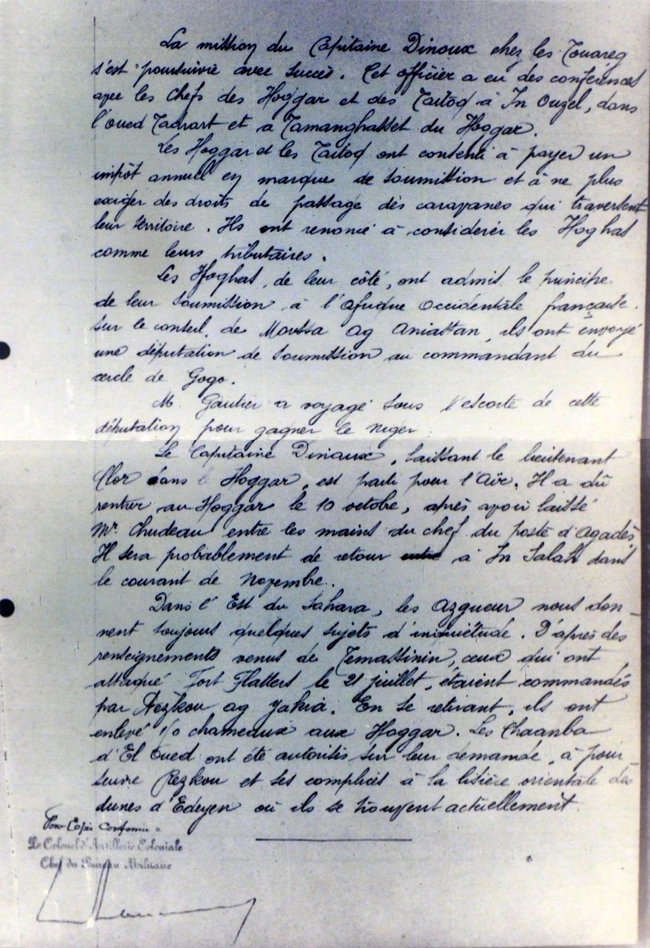 La mission du Capitaine Dinoux chez les Touareg
s'est poursuivie avec succès. Cet officier a eu des conférences
avec les Chefs des Hoggar et des Taïtoq à In Ouzel, dans
l'oued Taurart et à Tamanghasset du Hoggar.
Les Hoggar et les Taïtoq ont consenti à payer un
impôt annuel en marque de soumission et à ne plus
exiger des droits de passage des caravanes qui traversent
leur territoire. Ils ont renoncé à considérer les Ifoghas
comme leurs tributaires.
Les Ifoghas, de leur côté, ont admis le principe
de leur soumission à l'Afrique Occidentale française.
Sur le conseil de Moussa ag Aniastan, ils ont envoyé
une députation de soumission au commandant du
cercle de Gogo.
M. Gautier a voyagé sous l'escorte de cette
députation pour gagner le Niger
Le Capitaine Dinaux, laissant le lieutenant
Clor dans le Hoggar, est parti pour l'Aïr. Il a dû
rentrer au Hoggar le 10 octobre, après avoir laissé
Mr. Chudeau entre les mains du chef du poste d'Agadès
Il sera probablement de retour à In Salah dans
le courant de Novembre.
Dans l'Est du Sahara, les Azgueur nous don-
nent toujours quelques sujets d'inquiétude. D'après des
renseignements venus de Temassinin, ceux qui ont
attaqué Fort Flatters le 21 juillet, étaient commandés
par Rezkou ag Yahia. En se retirant, ils ont
enlevé chameaux aux Hoggar. Les Chaanba
d'El Oued ont été autorisés sur leur demande, à pour
suivre Rezkou et ses complices à la lisière orientale des
dunes d'Edeyen où ils se trouvent actuellement.
Pour Copie conforme
Le Colonel d'Artillerie Coloniale
Chef du Bureau Militaire